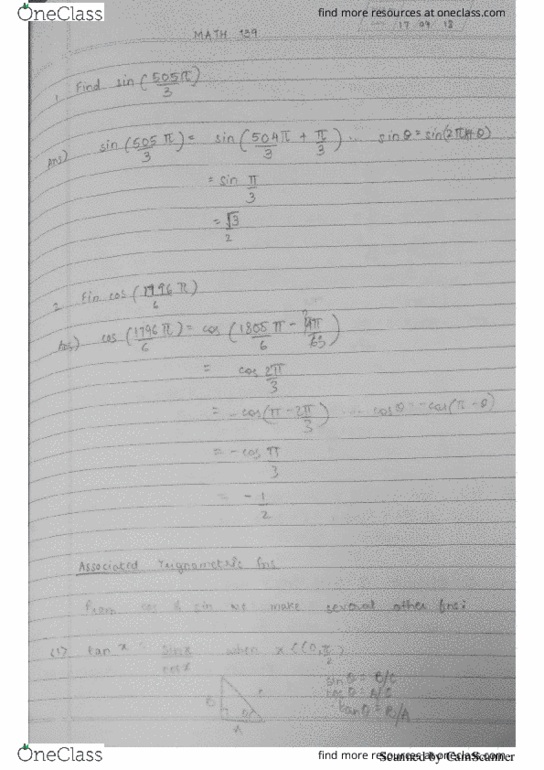 OneClass
find more resources at oneclass.com
17 09 18
MATH 139
1. Find sin(505π/3)
Ans) sin(505π/3) = sin(504π/3 + π/3) ∵ sinθ = sin(2πn+θ)
= sin π/3
= √3/2
2. Fin cos(1796π/6)
Ans) cos(1796π/6) = cos(1805π/6 -
= cos 2π/3
= -cos(π - 2π/3) ∵ cosθ = -cos(π - θ)
= -cos π/3
= -1/2
Associated Trignometric fns
From cos & sin we make several other fns:
(1) tan x = sinx/cosx when x ∈ (0, π/2)
sinθ = B/C
cosθ = A/C
tanθ = B/A
B
A
OneClass
find more resources at oneclass.com
Scanned by CamScanner